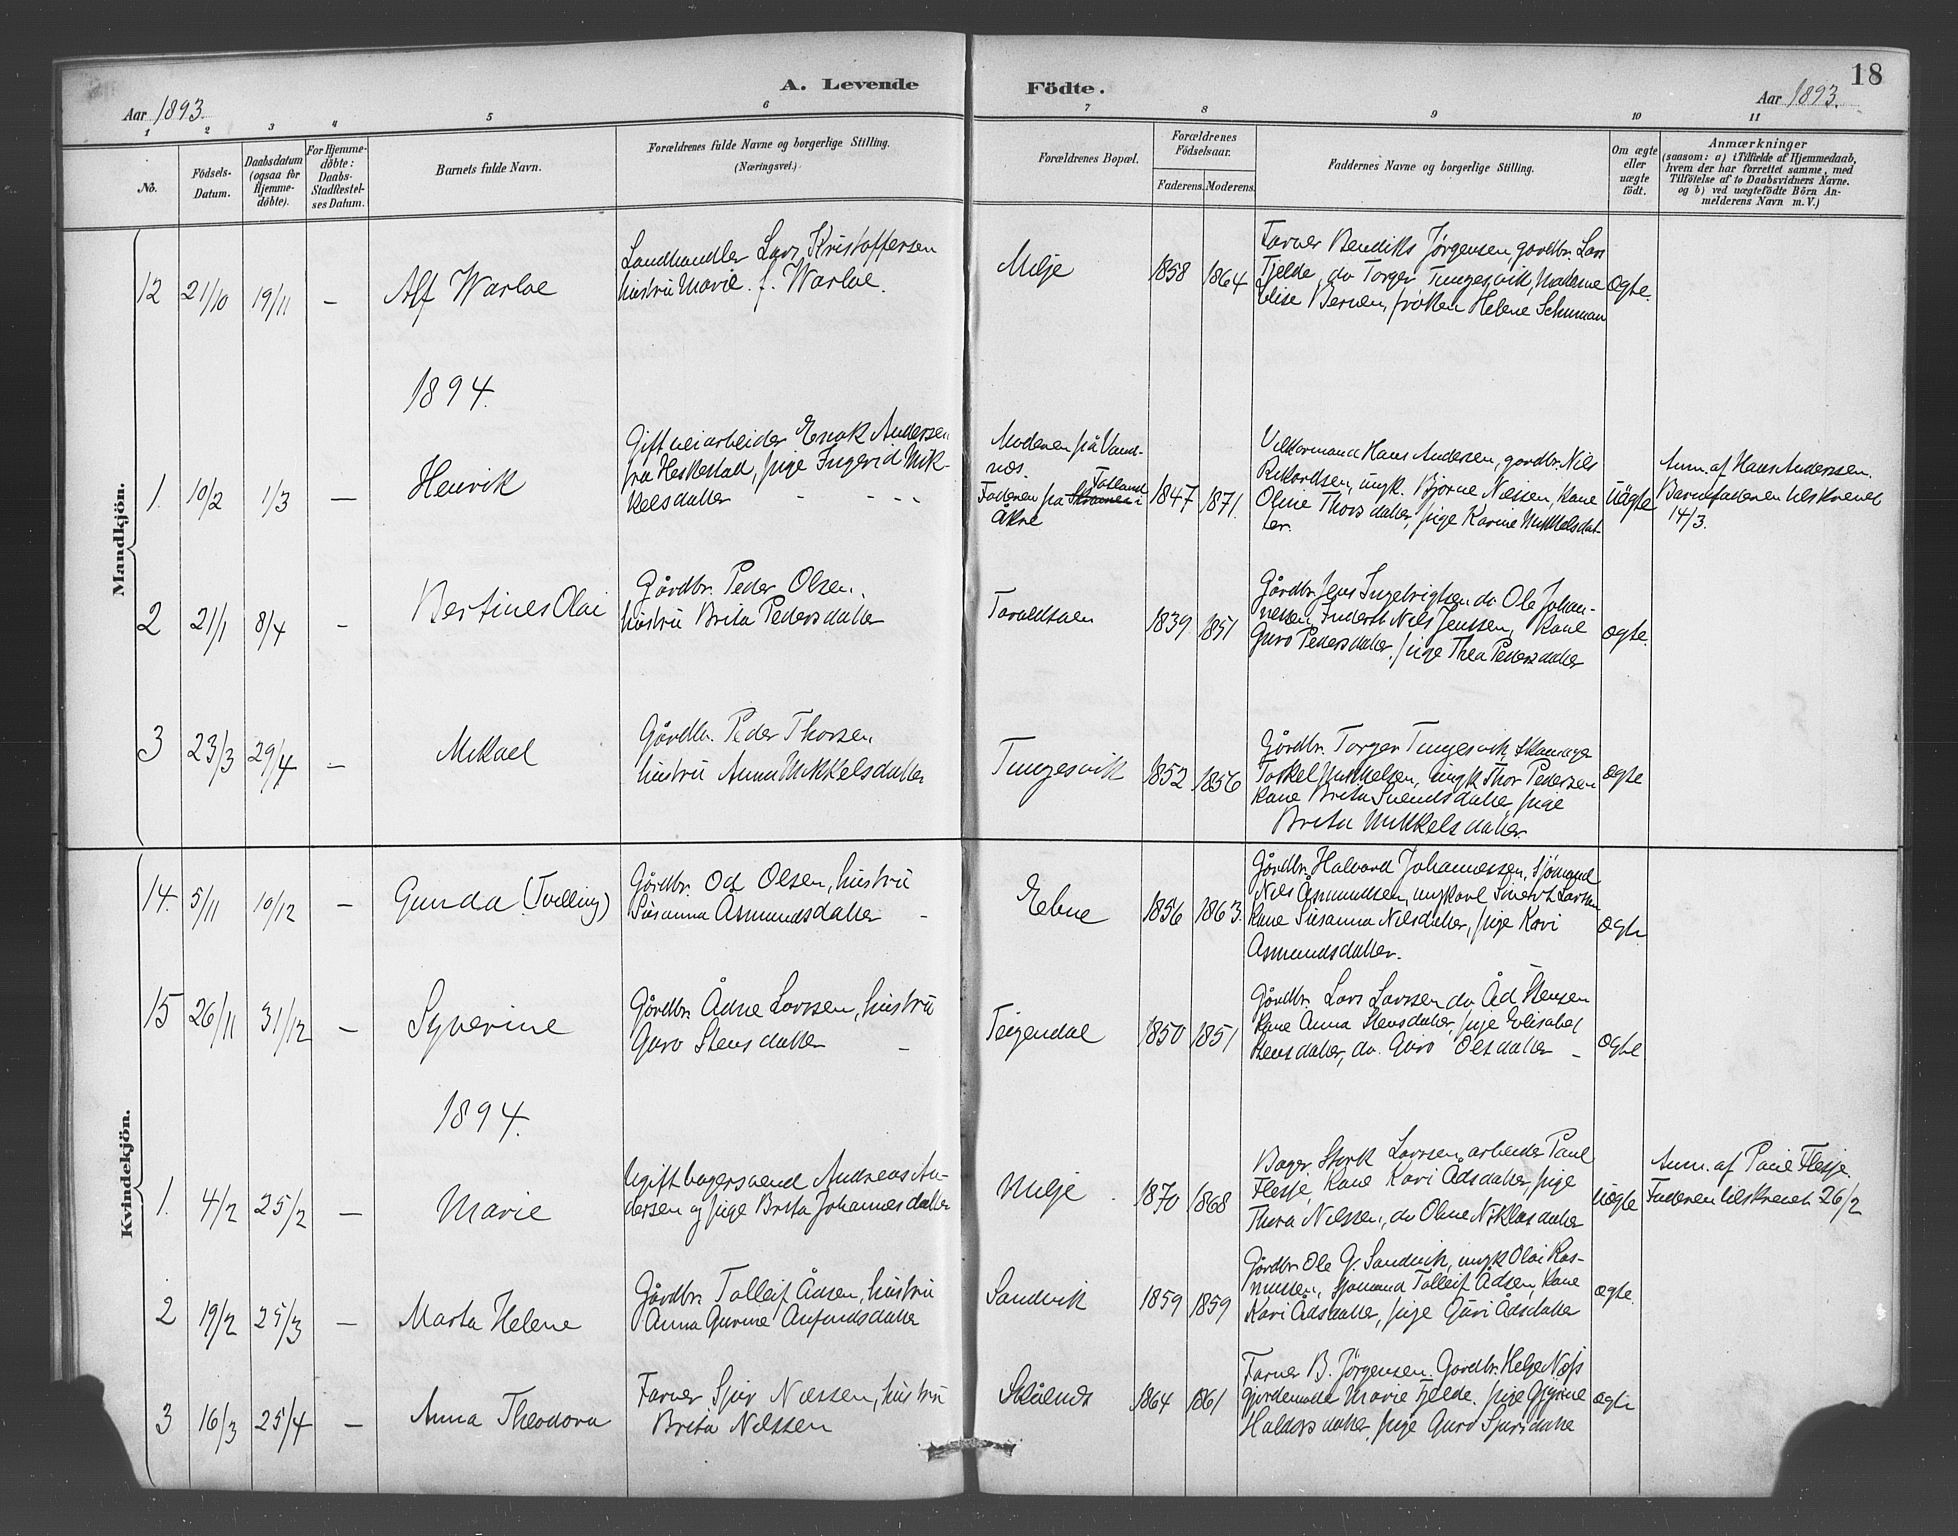 A. Levende Födte.
18
Aar 1893.
Aar 1893.
1 2 3 4 5 6 7 8 9 10 11
No.
Födsels-
Datum.
Daabsdatum
(ogsaa for
Hjemme-
döbte).
For Hjemme-
döbte:
Daabs-
Stadfæstel-
ses Datum.
Barnets fulde Navn.
Forældrenes fulde Navne og borgerlige Stilling.
(Næringsvei.)
Forældrenes Bopæl.
Forældrenes
Födselsaar.
Faderens. Moderens.
Faddernes Navne og borgerlige Stilling.
Om ægte
eller
uægte
födt.
Anmærkninger
(saasom: a) i Tilfælde af Hjemmedaab,
hvem der har forrettet samme, med
Tilföielse af to Daabsvidners Navne.
og b) ved uægtefödte Börn An-
melderens Navn m. V.)
Mandkjön.
12 21/10 19/11 - Alf Warloe
Landhandler Lars Kristoffersen
hustru Marie f. Warloe.
Milje 1858 1864
Farver Bendiks Jørgensen, gårdbr. Lars
Fjelde, do Torger Tungesvik, Madame
Elise Bernen, frøken Helene Schuman
ægte.
1894.
1. 10/2 1/3 - Henrik
Gift veiarbeider Enok Andersen
fra Heskestad, pige Ingerid Mik-
kelsdatter
Moderen på Vand-
næs.
Faderen på Totland i
Åkre
1847 1871.
Hans Andersen, gårdbr. Nils
Rikordsen, ungk. Bjørne Nilssen, kone
Oline Thorsdatter, pige Karine Mikkelsdat-
ter.
uægte
Anm. af Hans Andersen.
Barnefaderen tilskrevet
14/3.
2 21/1 8/4 - Bertines Olai
Gårdbr. Peder Olsen,
hustru Brita Pedersdatter
1839 1851
Gårdbr. Jens Ingebrigtsen do Ole Johan-
nessen, Inderst Nils Jenssen, kone
Guro Pedersdatter, pige Thea Pedersdatter
ægte.
3 23/3 29/4 - Mikael
Gårdbr. Peder Thorsen,
hustru Anna Mikkelsdatter
Tungesvik 1852 1856
Gårdbr. Torger Tungesvik,
Torkel Mikkelsen, ungk Thor Pedersen
kone Brita Svendsdatter, pige
Brita Mikkelsdatter.
ægte
Kvindekjön.
14. 5/11 10/12 - Gunda (Tvilling)
Gårdbr. Od Olsen, hustru
Susanna Åsmundsdatter -
Eelne 1856 1863.
Gårdbr. Halvard Johannessen, Sjømand
Nils Åsmundsen, ungkarl Sivert Larsen
kone Susanna Nilsdatter, pige Kari
Asmundsdatter.
ægte
15 26/11 31/12 - Syverine
Gårdbr. Ådne Larssen, hustru
Guro Stensdatter -
Teigendal 1850 1851
Gårdbr. Lars Larssen do Åd Stensen
kone Anna Stensdatter, pige Elisabet
Stensdatter, do. Guro Olsdatter -
ægte
1894.
1. 4/2 25/2 - Marie
Ugift bagersvend Andreas An-
dersen og pige Brita Johannesdatter
Milje. 1870 1868
Bager Stork Larssen, arbeider Paul
Flesje, kone Kari Ådsdatter, pige
Thora Nilssen, do Oline Niklasdatter
uægte
Anm. af Paul Flesje
Faderen tilskrevet 26/2
2 19/2 25/3 - Marta Helene
Gårdbr. Tolleif Ådsen, hustru
Anna Gurine Anfindsdatter
Sandvik 1859 1859
Gårdbr. Ole G. Sandvik, ungk Olai Ras-
mussen, sjømand Tolleif Ådsen, kone
Kari Ådsdatter, pige Guri Ådsdatter
ægte.
3 16/3 25/4 - Anna Theodora
Farver Sjur Næssen, hustru
Brita Nilssen
1864 1861
Farver B. Jørgensen. Gårdbr. Helge Næss
gjordemoder Marie Fjelde, pige Gjyrine
Haldorsdatter, pige Guro Sjursdatter
ægte